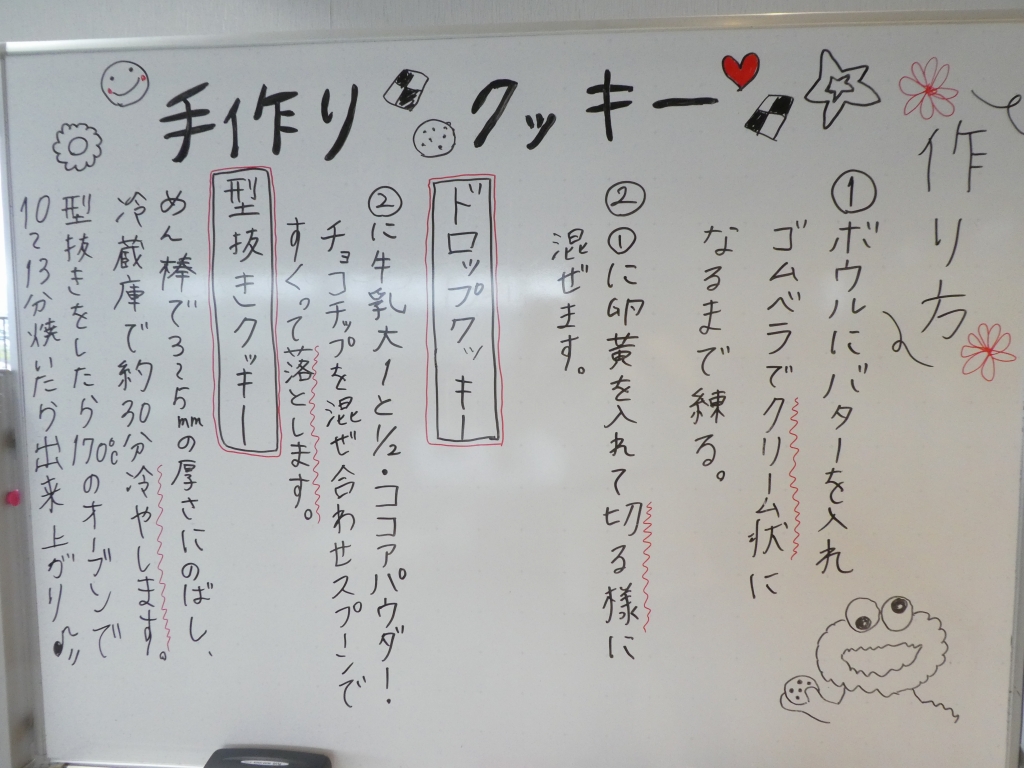 手作り クッキー
作り方
①ボウルにバターを入れ
ゴムベラでクリーム状に
なるまで練る。
②①に卵黄を入れて切る様に
混ぜます。
ドロップクッキー
②に牛乳大1と1/2・ココアパウダー・
チョコチップを混ぜ合わせスプーンで
すくって落とします。
型抜きクッキー
めん棒で3~5mmの厚さにのばし、
冷蔵庫で約30分冷やします。
型抜きをしたら170℃のオーブンで
10~13分焼いたら出来上がり♪